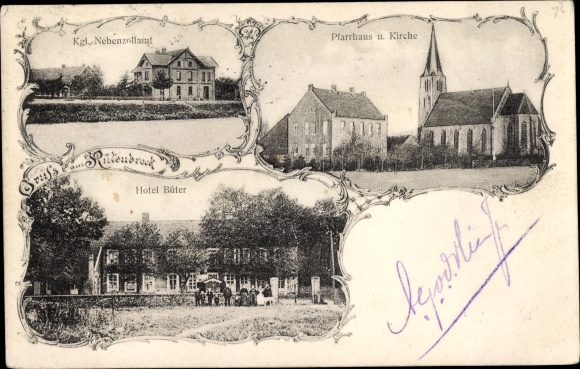 Kgl. Nebenzollamt
Pfarrhaus u. Kirche
Gruß aus Rütenbrock
Hotel Büter